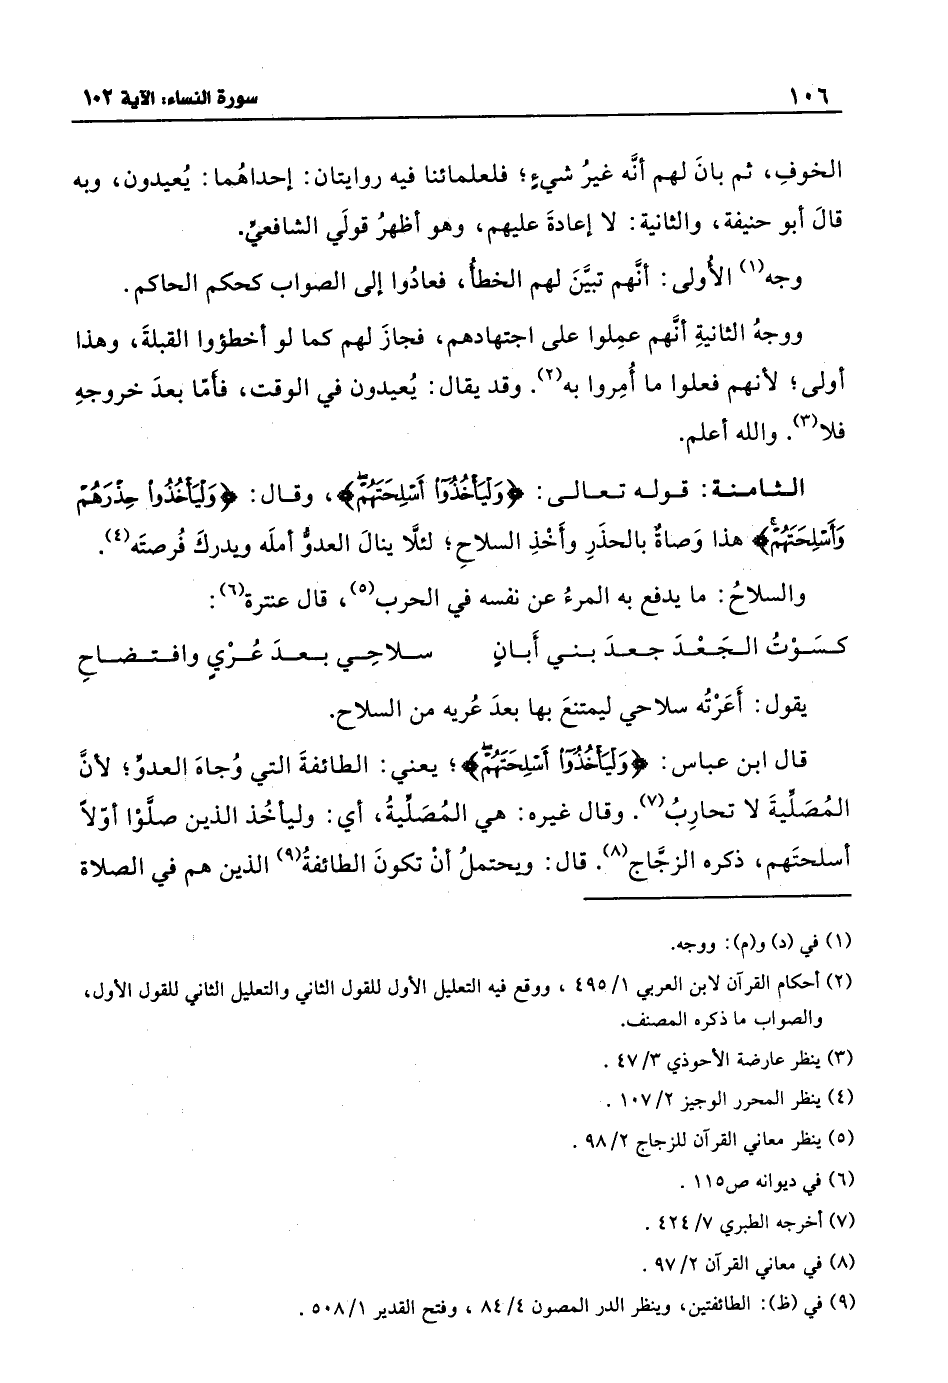 ١٠٦ سورة النساء: الآية ١٠٢
الخوفِ، ثم بانَ لهم أنَّه غيرُ شيءٍ؛ فلعلمائنا فيه روايتان: إحداهُما: يُعيدون، وبه
قالَ أبو حنيفة، والثانية: لا إعادةَ عليهم، وهو أظهرُ قولَي الشافعيِّ.
وجه(١) الأُولى: أنَّهم تبيَّنَ لهم الخطأُ، فعادُوا إلى الصواب كحكم الحاكم.
ووجهُ الثانيةِ أنَّهم عمِلوا على اجتهادهم، فجازَ لهم كما لو أخطؤوا القبلةَ، وهذا
أولى؛ لأنهم فعلوا ما أُمِروا به(٢). وقد يقال: يُعيدون في الوقت، فأمّا بعدَ خروجهِ
فلا(٣). والله أعلم.
الثامنة: قوله تعالى: ﴿وَلْيَأْخُذُوٓا۟ أَسْلِحَتَهُمْ ۖ﴾، وقال: ﴿وَلْيَأْخُذُوا۟ حِذْرَهُمْ
وَأَسْلِحَتَهُمْ ۗ﴾ هذا وَصاةٌ بالحذَرِ وأَخْذِ السلاح؛ لئلَّا ينالَ العدوُّ أملَه ويدركَ فُرصتَه(٤).
والسلاحُ: ما يدفع به المرءُ عن نفسه في الحرب(٥)، قال عنترة(٦):
كسَوْتُ الجَعْدَ جعدَ بني أَبانٍ سلاحِي بعدَ عُرْيٍ وافتضاحِ
يقول: أَعَرْتُه سلاحي ليمتنعَ بها بعدَ عُريه من السلاح.
قال ابن عباس: ﴿وَلْيَأْخُذُوٓا۟ أَسْلِحَتَهُمْ ۖ﴾؛ يعني: الطائفةَ التي وُجاهَ العدوِّ؛ لأنَّ
المُصَلِّيةَ لا تحاربُ(٧). وقال غيره: هي المُصَلِّيةُ، أي: وليأخذ الذين صلَّوْا أوّلاً
أسلحتَهم، ذكره الزجَّاج(٨). قال: ويحتملُ أنْ تكونَ الطائفةُ(٩) الذين هم في الصلاة
(١) في (د) و(م): ووجه.
(٢) أحكام القرآن لابن العربي ١/ ٤٩٥، ووقع فيه التعليل الأول للقول الثاني والتعليل الثاني للقول الأول،
والصواب ما ذكره المصنف.
(٣) ينظر عارضة الأحوذي ٣/ ٤٧.
(٤) ينظر المحرر الوجيز ٢/ ١٠٧.
(٥) ينظر معاني القرآن للزجاج ٢/ ٩٨.
(٦) في ديوانه ص١١٥.
(٧) أخرجه الطبري ٧/ ٤٢٤.
(٨) في معاني القرآن ٢/ ٩٧.
(٩) في (ظ): الطائفتين، وينظر الدر المصون ٤/ ٨٤، وفتح القدير ١/ ٥٠٨.